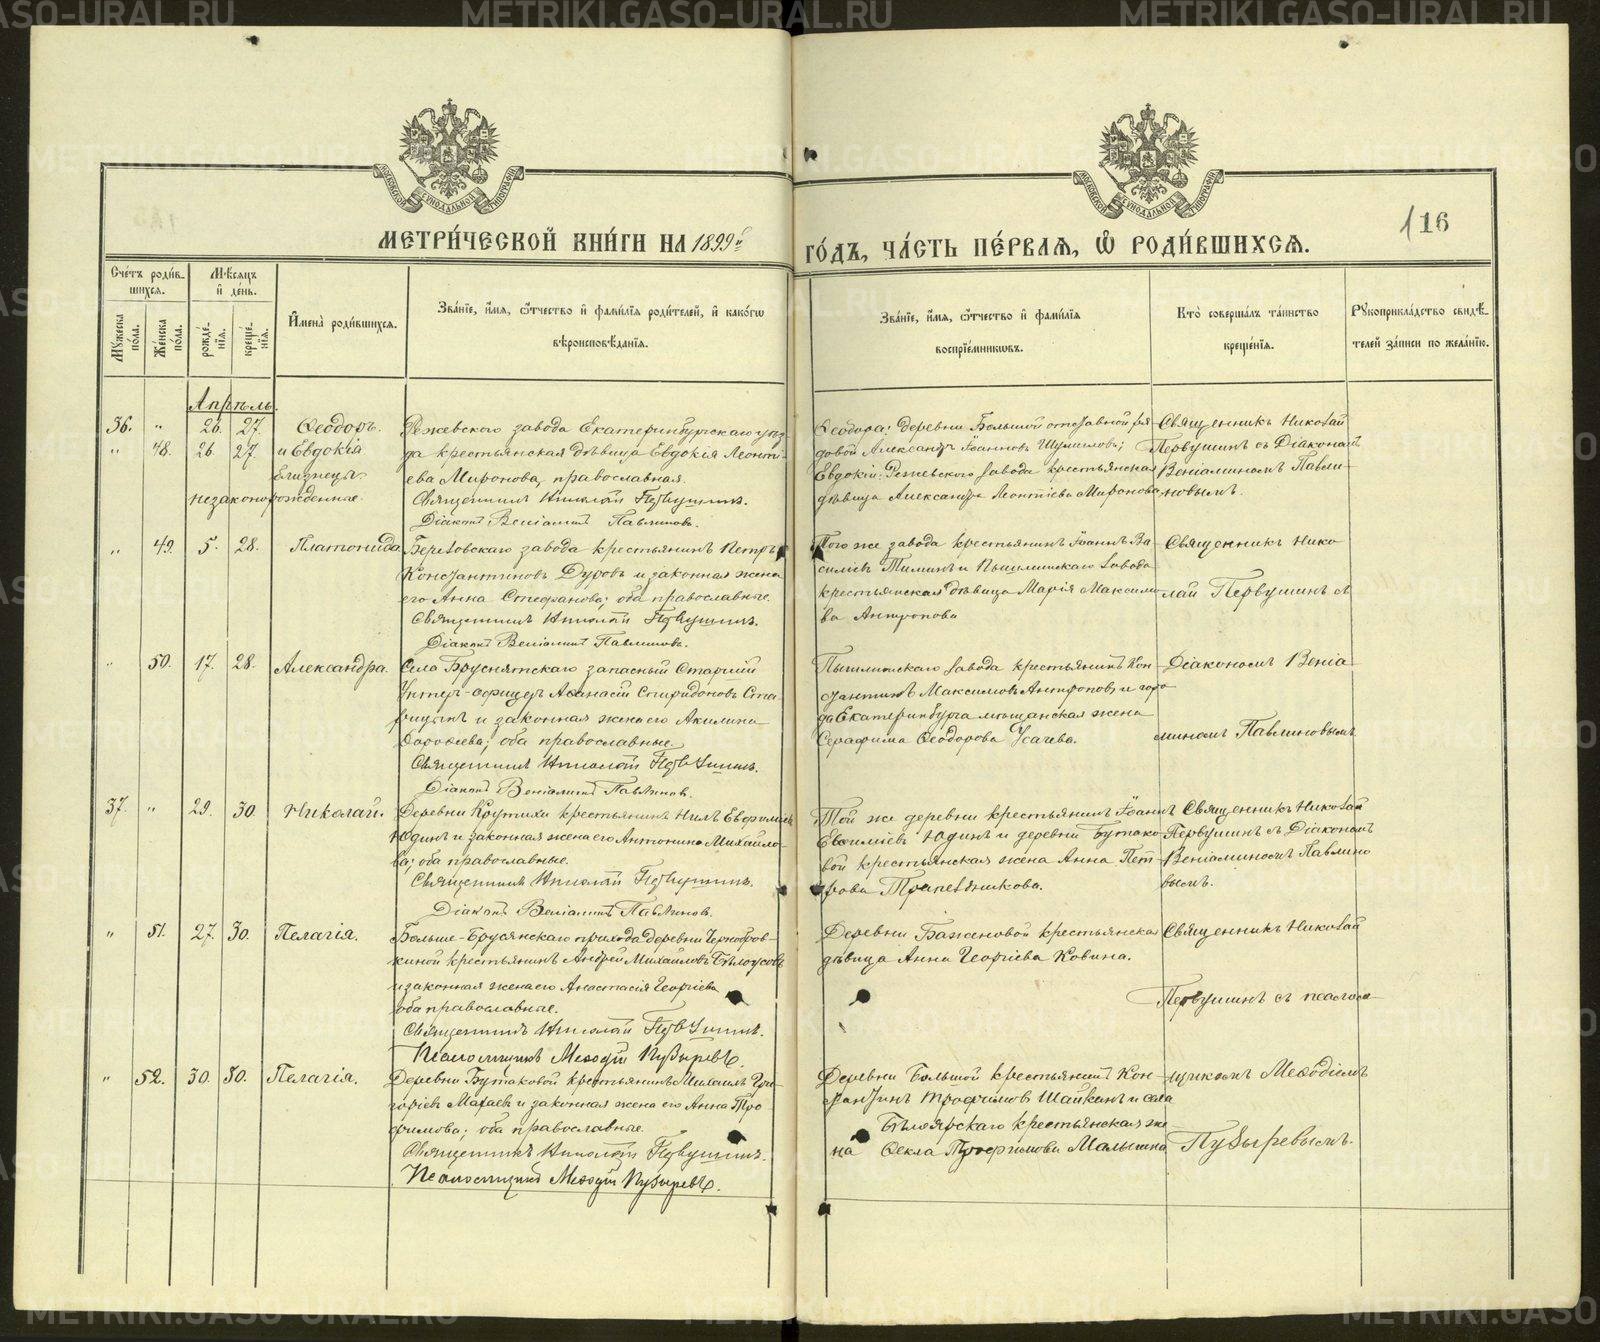 METRIKI.GASO-URAL.RU
116
МЕТРИ́ЧЕСКОЙ КНИ́ГИ НА 1899й
ГО́ДЪ, ЧА́СТЬ ПЕ́РВАЯ, Ѽ РОДИ́ВШИХСЯ.
Сче́тъ роди́в-
шихся.
Мꙋ́жеска по́ла.
Же́нска по́ла.
Мѣ́сяцъ и҆ де́нь.
рожде́нїя.
креще́нїя.
И҆мена̀ роди́вшихся.
Зва́нїе, и҆́мя, ѻ҆́тчество и҆ фами́лїя роди́телей, и҆ како́гѡ
вѣроисповѣ́данїя.
Зва́нїе, и҆́мя, ѻ҆́тчество и҆ фами́лїя
воспрїе́мникѡвъ.
Кто̀ соверша́лъ та́инство
креще́нїя.
Рꙋкоприкла́дство свидѣ́-
телей за́писи по жела́нїю.
Апрѣль.
36. " 26. 27. Ѳеодоръ.
" 48. 26. 27. и Евдокія
близнецы
незаконорожденные.
Режевскаго завода Екатеринбургскаго уѣз-
да крестьянская дѣвица Евдокія Леонті-
ева Миронова, православная.
Священникъ Николай Первушинъ.
Діаконъ Веніаминъ Павлиновъ.
Ѳеодора: деревни Большой отставной ря
довой Александръ Іоанновъ Шумиловъ;
Евдокіи: Режевскаго завода крестьянская
дѣвица Александра Леонтіева Миронова
Священникъ Николай
Первушинъ съ Діакономъ
Веніаминомъ Павли-
новымъ.
" 49. 5. 28. Платонида
Березовскаго завода крестьянинъ Петръ
Константиновъ Дуровъ и законная жена
его Анна Стефанова; оба православные.
Священникъ Николай Первушинъ.
Діаконъ Веніаминъ Павлиновъ.
Того же завода крестьянинъ Іоаннъ Ва-
силіевъ Тиминъ и Пышминскаго завода
крестьянская дѣвица Марія Максимо
ва Антропова
Священникъ Нико
лай Первушинъ съ
" 50. 17. 28. Александра.
Села Бруснятскаго запасный Старшій
Унтеръ-офицеръ Аѳанасій Спиридоновъ Ста-
рицынъ и законная жена его Акилина
Дороѳеева; оба православные.
Священникъ Николай Первушинъ.
Діаконъ Веніаминъ Павлиновъ.
Пышминскаго завода крестьянинъ Кон-
стантинъ Максимовъ Антроповъ и горо
да Екатеринбурга мѣщанская жена
Серафима Ѳеодорова Усачева.
Діакономъ Веніа
миномъ Павлиновымъ
37. " 29. 30. Николай.
Деревни Крутихи крестьянинъ Нилъ Евѳиміевъ
Юдинъ и законная жена его Антонина Михайло-
ва; оба православные.
Священникъ Николай Первушинъ.
Діаконъ Веніаминъ Павлиновъ.
Той же деревни крестьянинъ Іоаннъ
Евѳиміевъ Юдинъ и деревни Бутако-
вой крестьянская жена Анна Пет-
рова Трапезникова.
Священникъ Николай
Первушинъ съ Діакономъ
Веніаминомъ Павлино
вымъ.
" 51. 27. 30. Пелагія.
Больше-Брусянскаго прихода деревни Чернобров-
киной крестьянинъ Андрей Михайловъ Бѣлоусовъ
и законная жена его Анастасія Георгіева
оба православные.
Священникъ Николай Первушинъ.
Псаломщикъ Меѳодій Пузыревъ.
Деревни Баженовой крестьянская
дѣвица Анна Георгіева Ковина.
Священникъ Николай
Первушинъ съ псалом-
" 52. 30. 30. Пелагія.
Деревни Бутаковой крестьянинъ Михаилъ Гри-
горіевъ Махаевъ и законная жена его Анна Тро-
фимова; оба православные.
Священникъ Николай Первушинъ.
Псаломщикъ Меѳодій Пузыревъ.
Деревни Большой крестьянинъ Кон-
стантинъ Трофимовъ Шайкинъ и села
Бѣлоярскаго крестьянская же
на Ѳекла Трофимова Малышкина
щикомъ Меѳодіемъ
Пузыревымъ.